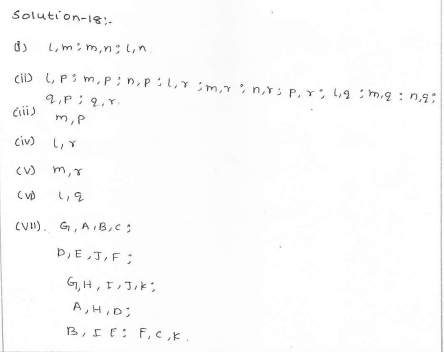 Solution-18:-
(i) l,m ; m,n ; l,n.
(ii) l,p ; m,p ; n,p ; l,r ; m,r ; n,r ; p,r ; l,q ; m,q ; n,q ;
q,p ; q,r.
(iii) m,p
(iv) l,r
(v) m,r
(vi) l,q
(VII). G,A,B,C ;
D,E,J,F ;
G,H,I,J,K ;
A,H,D ;
B, I E ; F,C,K.